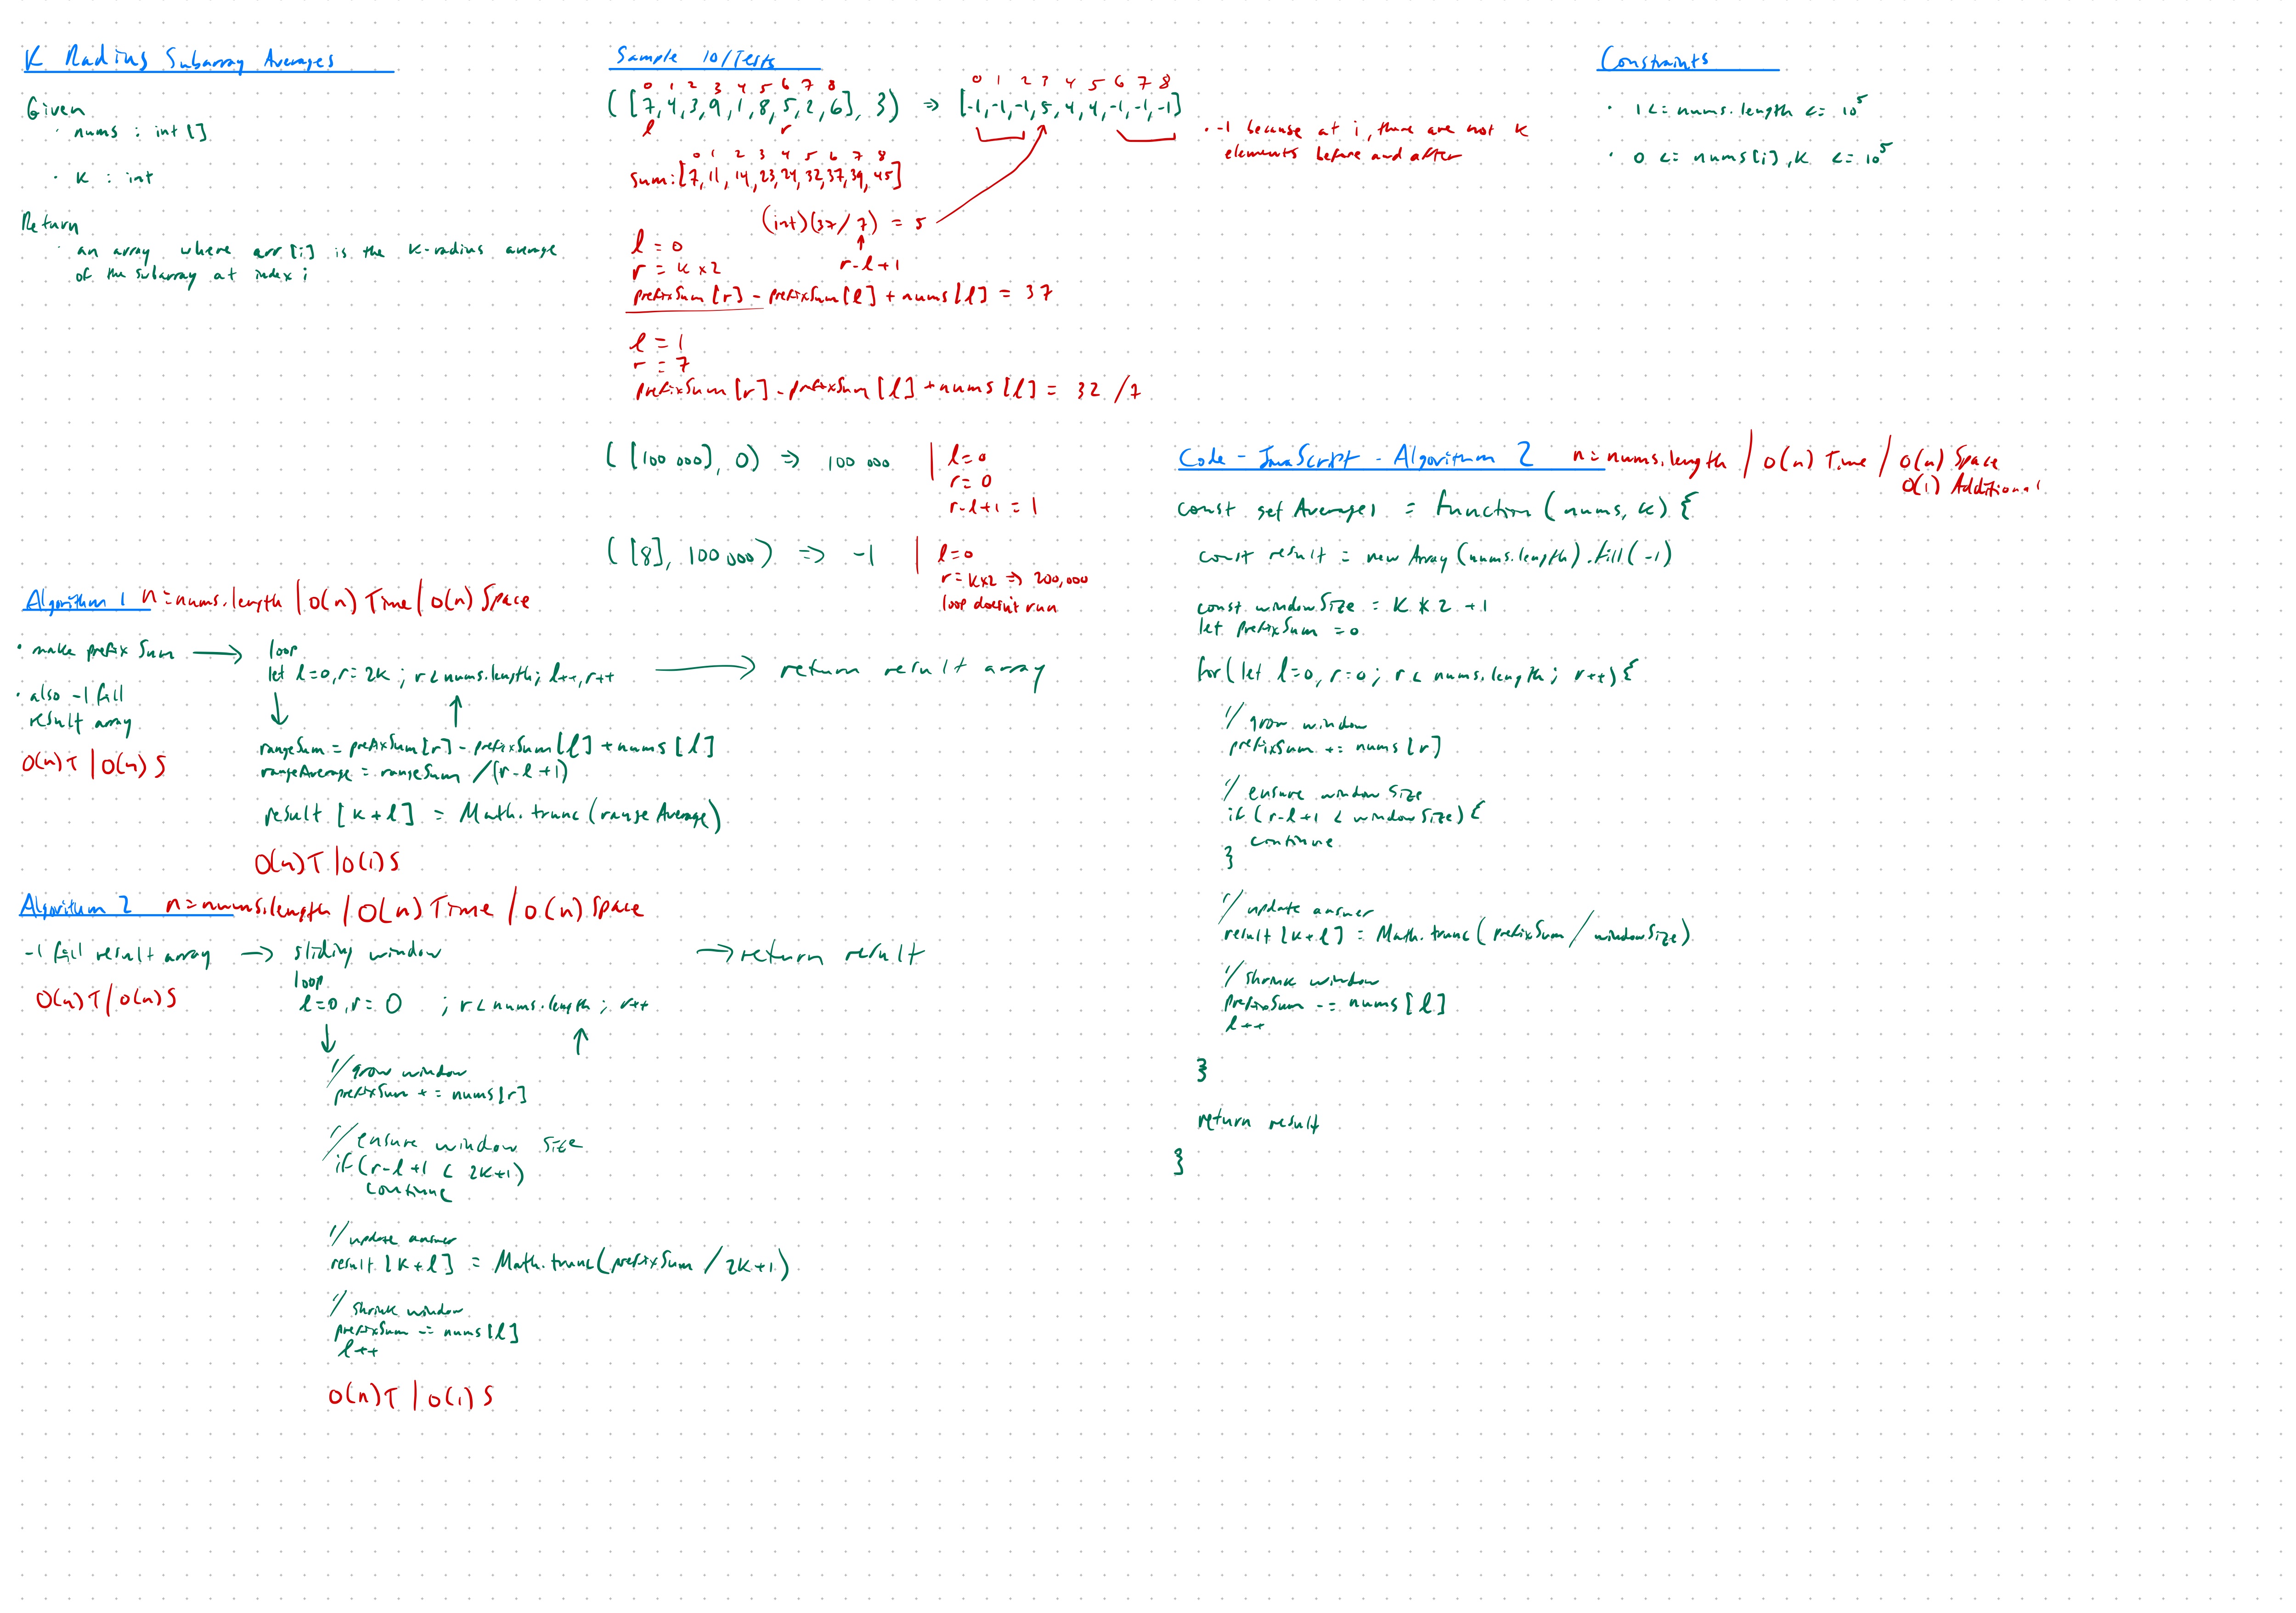 K Radius Subarray Averages
Given
· nums : int[]
· K : int
Return
· an array where arr[i] is the K-radius average
of the subarray at index i
Sample IO/Tests
0 1 2 3 4 5 6 7 8
([7,4,3,9,1,8,5,2,6], 3) => [-1,-1,-1,5,4,4,-1,-1,-1]
0 1 2 3 4 5 6 7 8
l r
· -1 because at i, there are not K
elements before and after
0 1 2 3 4 5 6 7 8
sum:[7,11,14,23,24,32,37,39,45]
(int)(37/7) = 5
r-l+1
l = 0
r = K x 2
prefixSum[r] - prefixSum[l] + nums[l] = 37
l = 1
r = 7
prefixSum[r] - prefixSum[l] + nums[l] = 32 /7
([100 000], 0) => 100 000
l=0
r=0
r-l+1 = 1
([8], 100 000) => -1
l=0
r=Kx2 => 200,000
loop doesn't run
Constraints
· 1 <= nums.length <= 10^5
· 0 <= nums[i], K <= 10^5
Algorithm 1 n=nums.length | O(n) Time | O(n) Space
· make prefix sum
· also -1 fill
result array
O(n) T | O(n) S
loop
let l=0, r=2K ; r < nums.length; l++, r++
rangeSum = prefixSum[r] - prefixSum[l] + nums[l]
rangeAverage = rangeSum / (r-l+1)
result [K+l] = Math.trunc(rangeAverage)
O(n) T | O(1) S
return result array
Algorithm 2 n=nums.length / O(n) Time / O(n) Space
-1 fill result array
O(n) T / O(n) S
sliding window
loop
l=0, r= 0 ; r < nums.length ; r++
// grow window
prefixSum += nums[r]
// ensure window size
if (r-l+1 < 2K+1)
continue
// update answer
result [K+l] = Math.trunc(prefixSum / 2K+1)
// shrink window
prefixSum -= nums[l]
l++
O(n) T | O(1) S
return result
Code - JavaScript - Algorithm 2 n=nums.length / O(n) Time / O(n) Space
O(1) Additional
const getAverages = function (nums, K) {
const result = new Array (nums.length).fill(-1)
const windowSize = K * 2 +1
let prefixSum =0
for (let l=0, r=0; r < nums.length; r++) {
// grow window
prefixSum += nums[r]
// ensure window size
if (r-l+1 < windowSize) {
continue
}
// update answer
result [K+l] = Math.trunc(prefixSum / windowSize)
// shrink window
prefixSum -= nums[l]
l++
}
return result
}